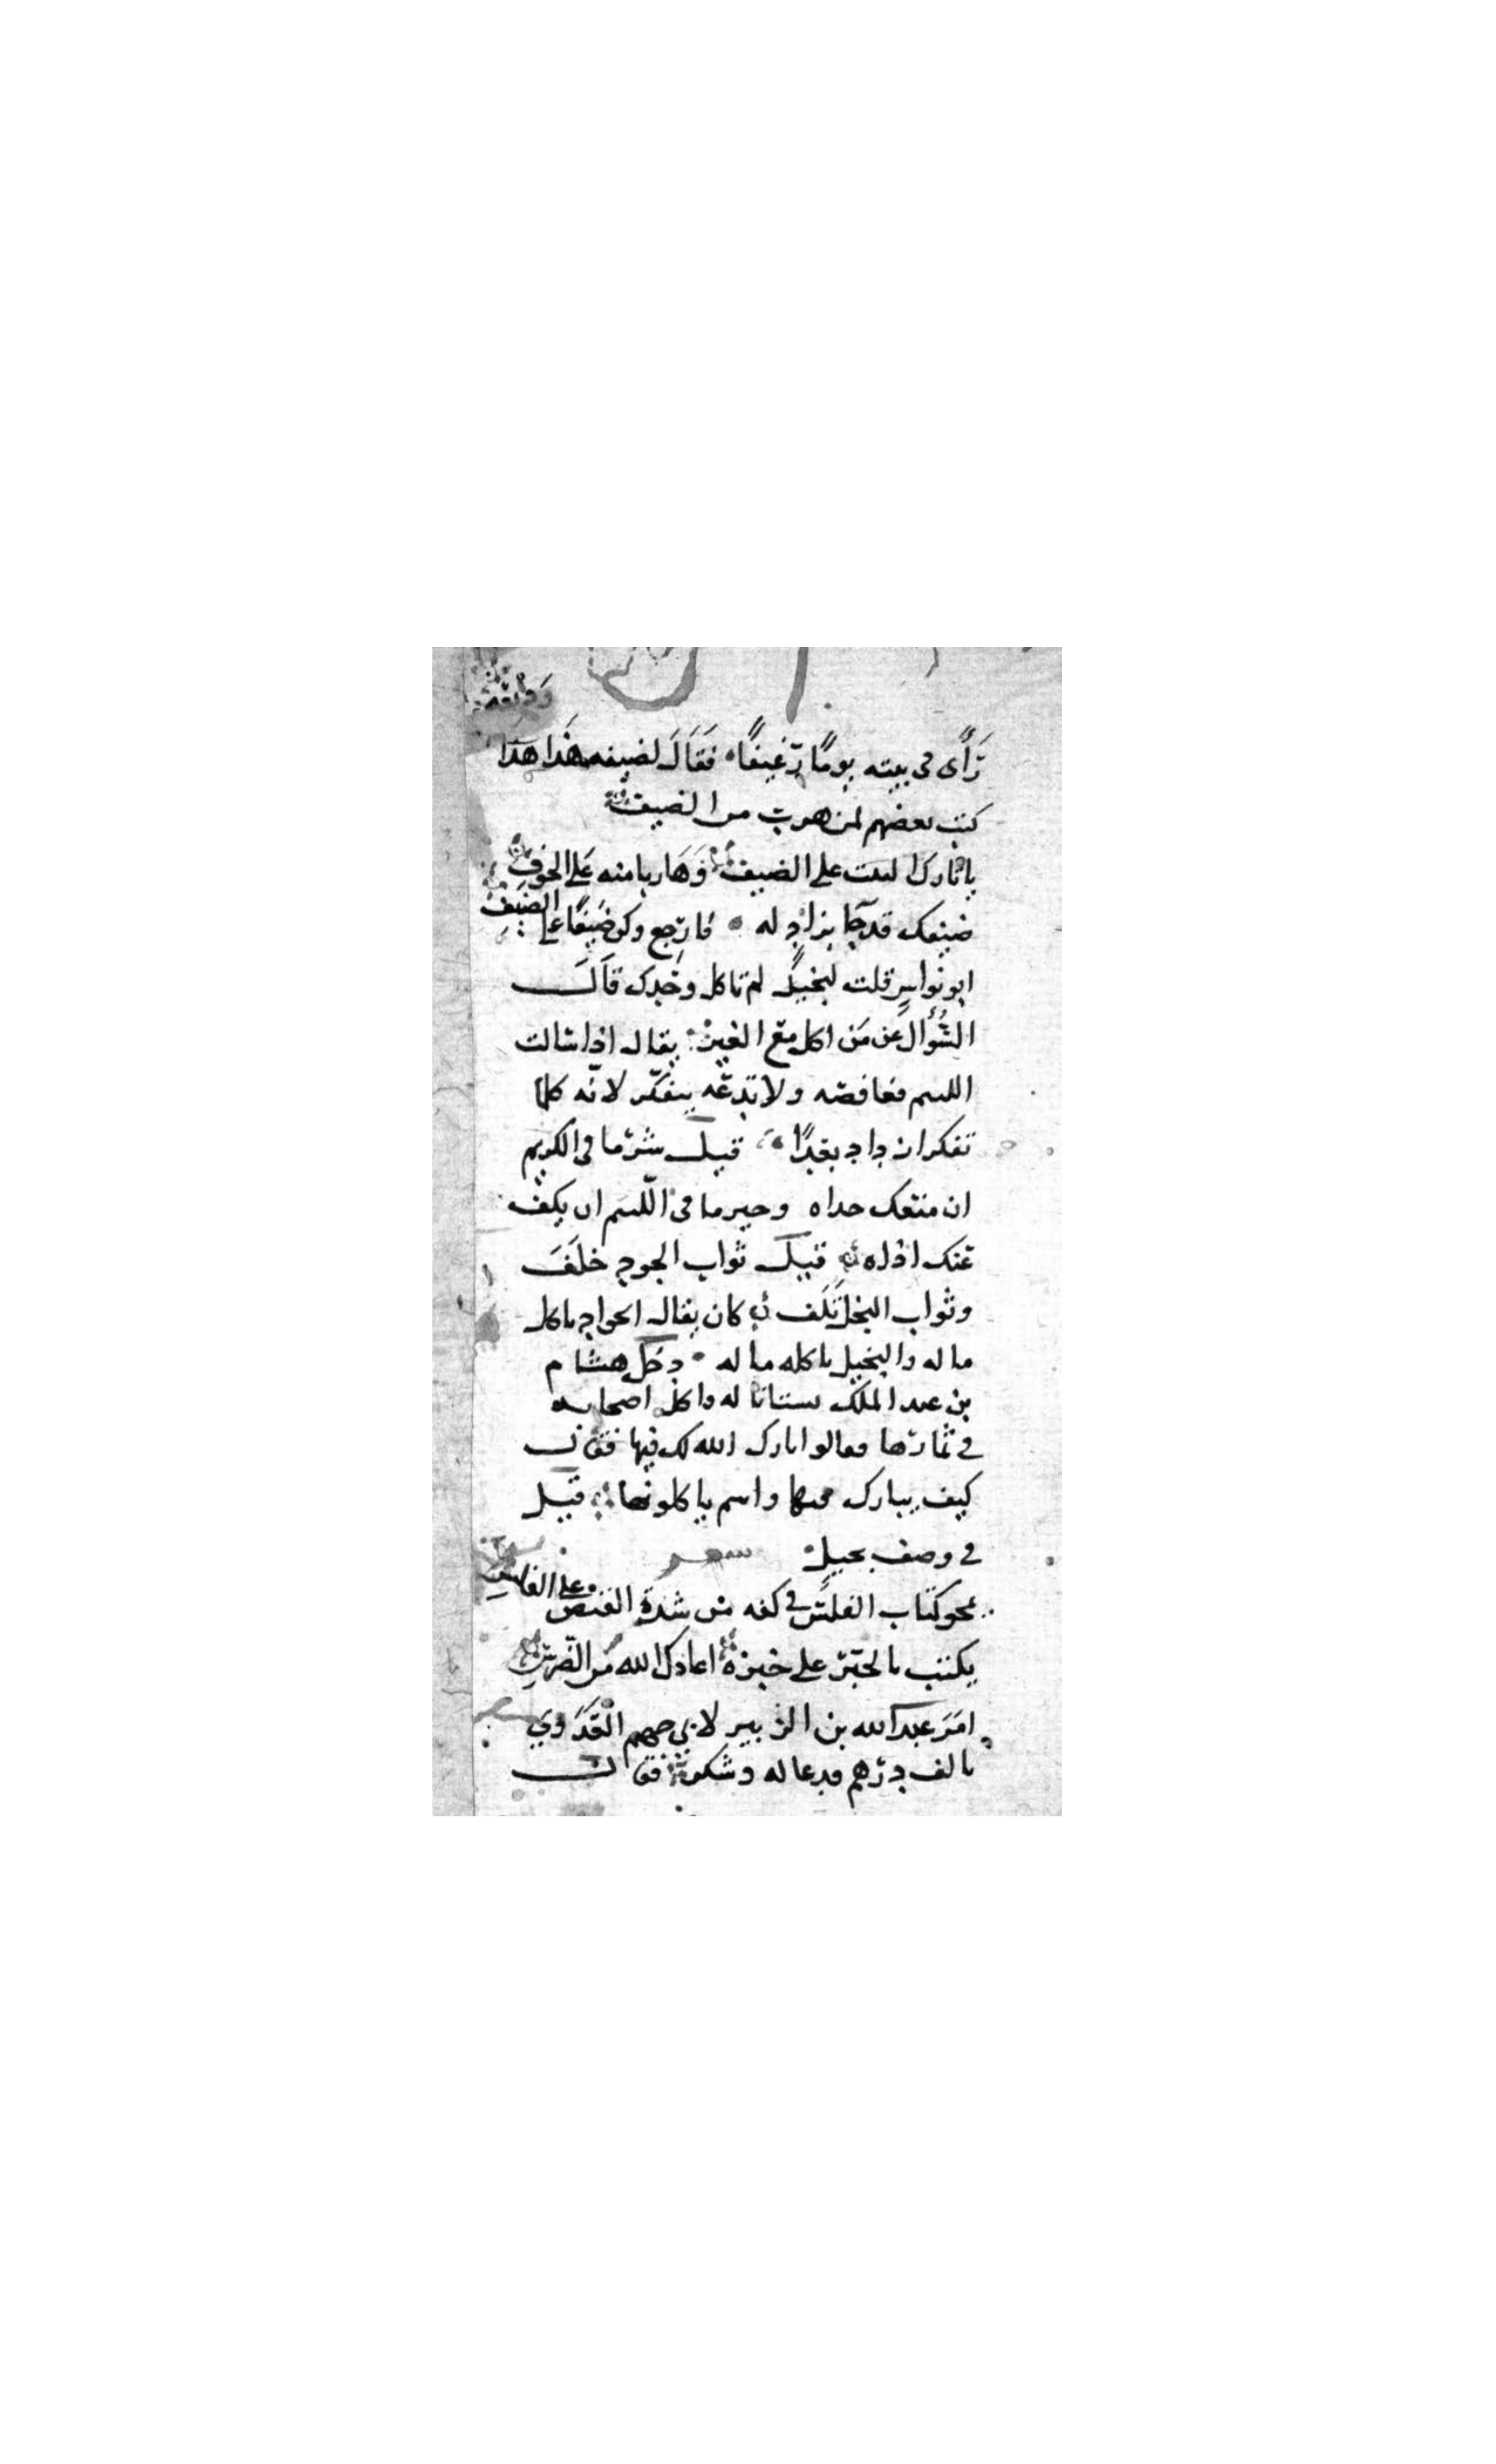 رَأى في بيته يومًا رغيفًا فَقَالَ لضيفه هَذا هذا
كتب بعضهم لمن هرب من الضيف
يا تارك البيت على الضيف وَهَاربا منه عَلى الخوف
ضيفك قد جا بزاد له فارجع وكن ضيفًا على الضيف
ابو نواس قلت لبخيل لم تاكل وحدك قال
السُؤال عن مَن اكل مع الغير يقال اذا سالت
اللئيم فعافصه ولا تدعه يتفكّر لانّه كلما
تفكر ازداد بعدًا قيل شر ما في الكريم
ان منعك جداه وخير ما في اللّئيم ان يكف
عنك اذاه قيل ثواب الجود خلَفَ
وثواب البخل تَلَف كان يقال الجواد ياكل
ماله والبخيل ياكله ماله دخل هشام
بن عبد الملك بستانا له واكل اصحابه
في ثمارها وقالوا بارك الله لك فيها فقال
كيف يبارك فيها وانتم ياكلونها قيل
في وصف بخيل شعر
محو كتاب الفلس في كفه من شدة القبض على الفلس
يكتب بالحبر على خبزه اعاذك الله من الضرس
امَرَ عبد الله بن الزبير لابي جهم العَدَوي
بالف درهم فدعا له وشكره فقال